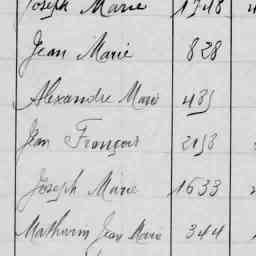 Joseph Marie 1748
Jean Marie 828
Alexandre Marie 435
Jean François 2153
Joseph Marie 1633
Mathurin Jean Marie 344